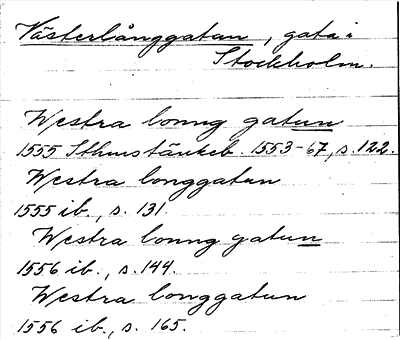 Västerlånggatan, gata i
Stockholm.
Westra lonng gatun
1555 Sthmstänkeb. 1553-67, s. 122.
Westra longgatun
1555 ib., s. 131.
Westra lonng gatun
1556 ib., s. 144.
Westra longgatun
1556 ib., s. 165.